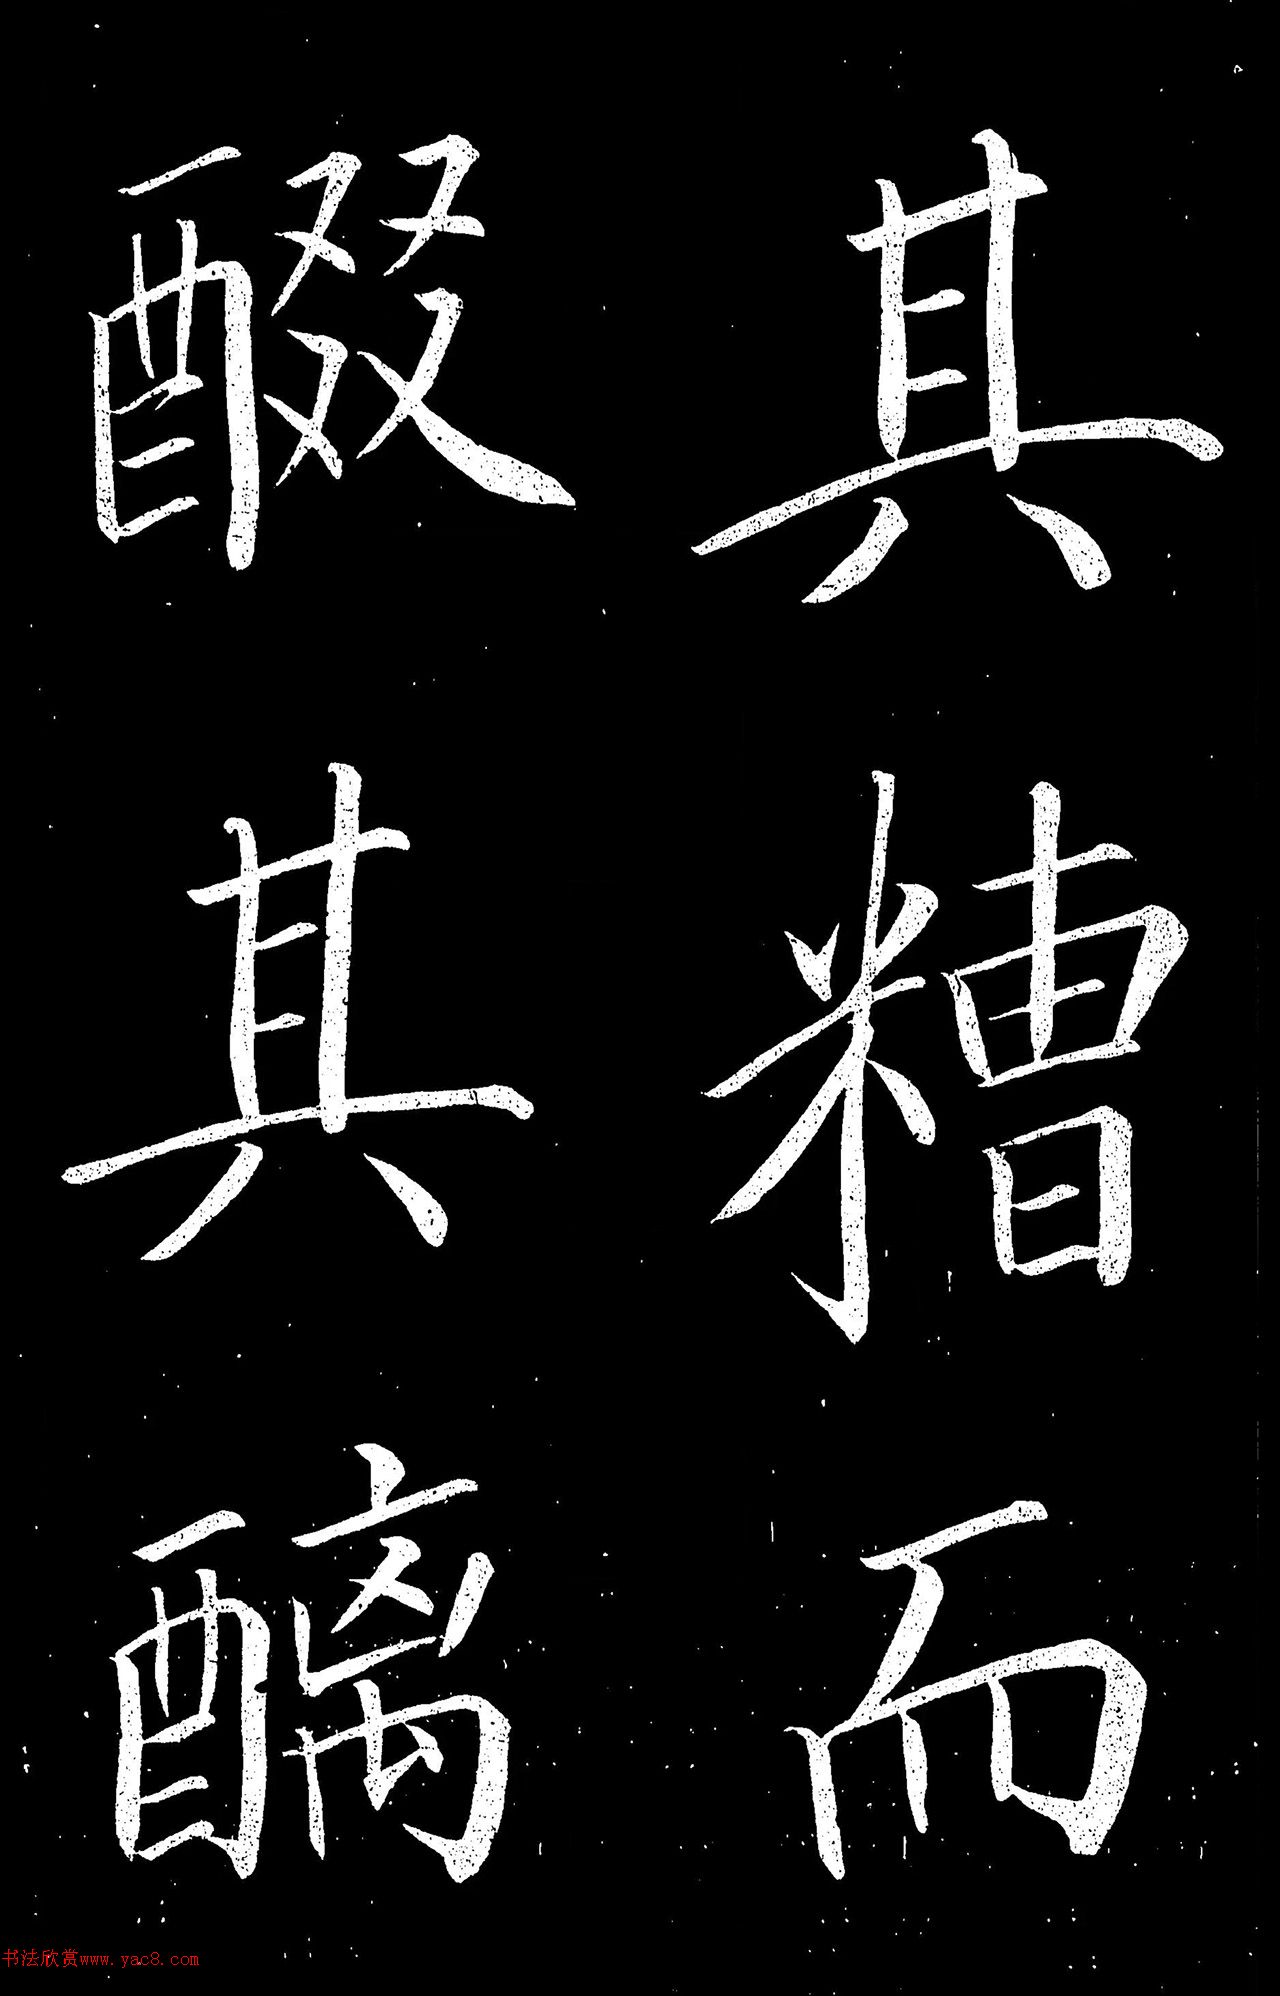 其糟而
醊其醨
书法欣赏www.yac8.com